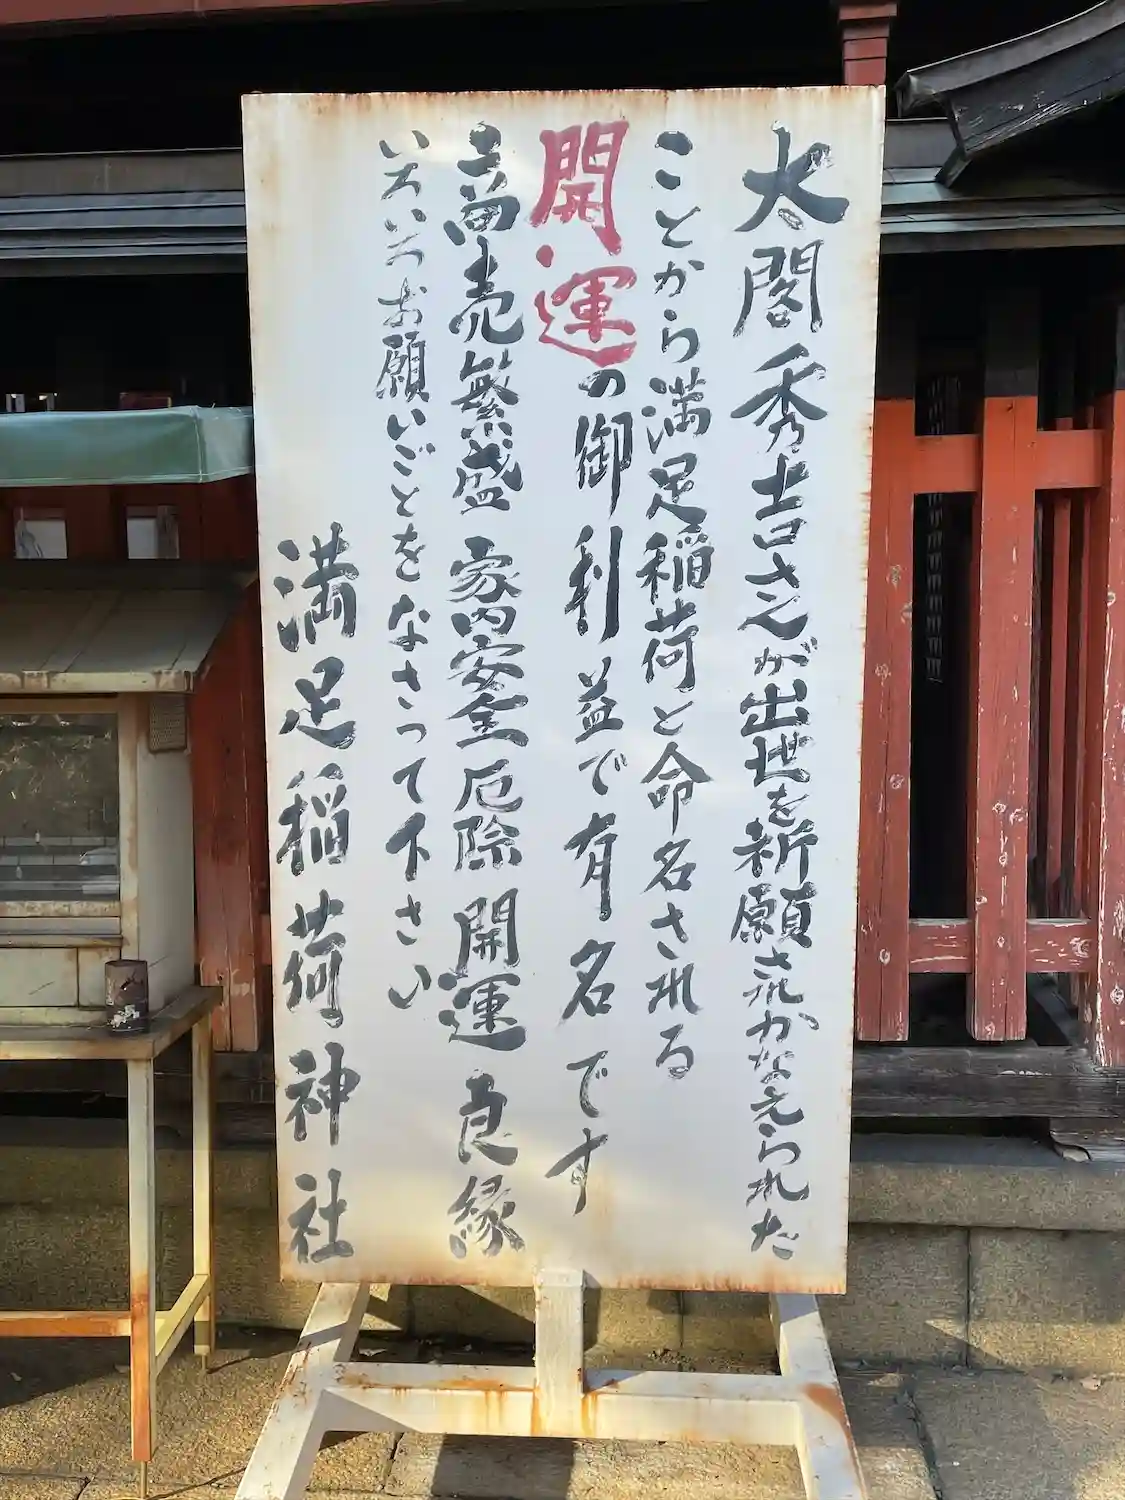 太閤秀吉さんが出世を祈願されかなえられた
ことから満足稲荷と命名される
開運の御利益で有名です
商売繁盛 家内安全 厄除 開運 良縁
お願いごとをなさって下さい
満足稲荷神社